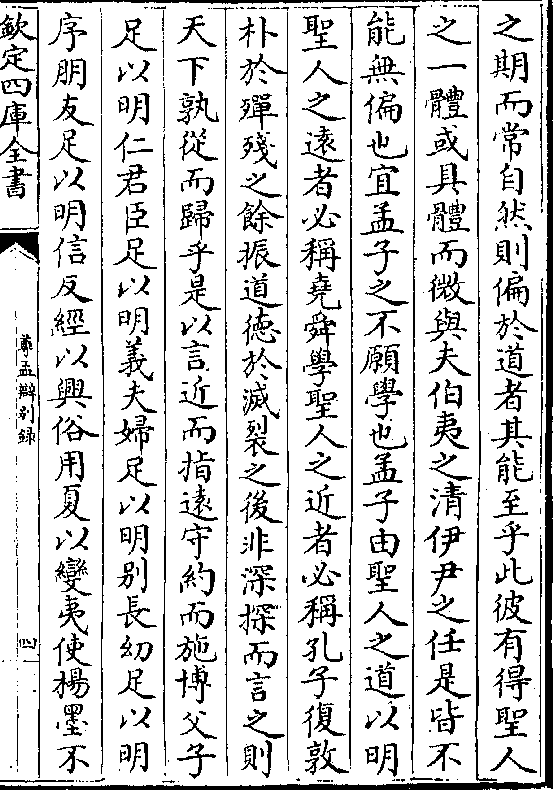 之期而常自然則偏於道者其能至乎此彼有得聖人
之一體或具體而微與夫伯夷之清伊尹之任是皆不
能無偏也宜孟子之不願學也孟子由聖人之道以明
聖人之遠者必稱堯舜學聖人之近者必稱孔子復敦
朴於殫殘之餘振道徳於滅裂之後非深探而言之則
天下孰從而歸乎是以言近而指遠守約而施博父子
足以明仁君臣足以明義夫婦足以明别長幼足以明
序朋友足以明信反經以興俗用夏以變夷使楊墨不
欽定四庫全書
尊孟辯别録
四